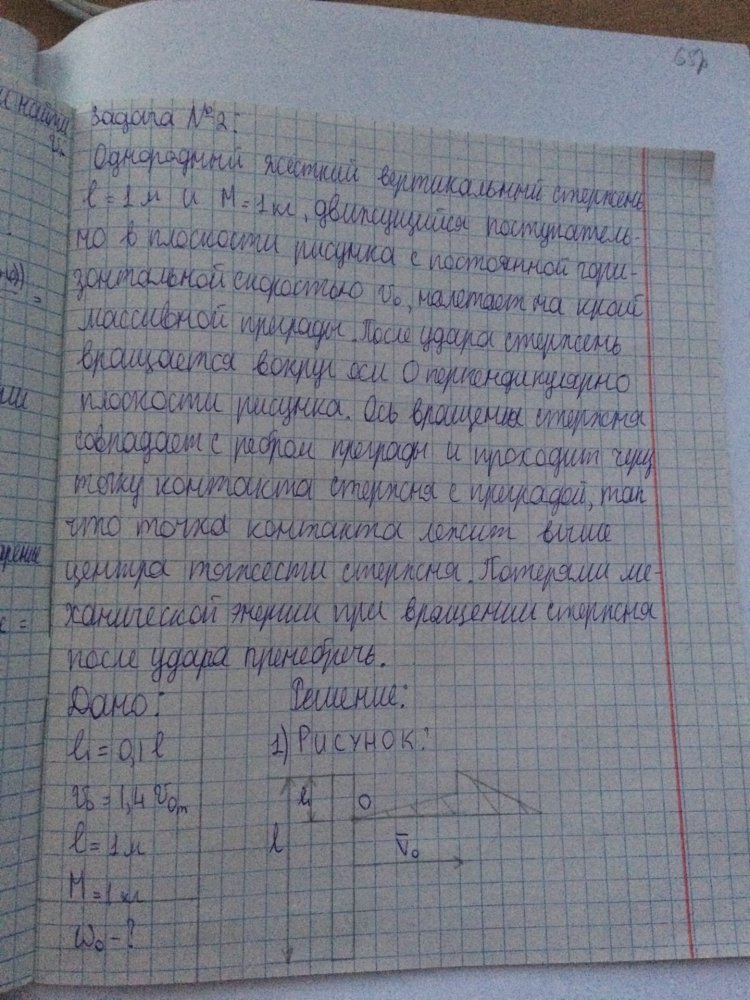 657
Задача №2:
Однородный жесткий вертикальный стержень
l = 1 м и M = 1 кг, движущийся поступатель-
но в плоскости рисунка с постоянной гори-
зонтальной скоростью v₀, налетает на край
массивной преграды. После удара стержень
вращается вокруг оси О перпендикулярно
плоскости рисунка. Ось вращения стержня
совпадает с ребром преграды и проходит через
точку контакта стержня с преградой, так
что точка контакта лежит выше
центра тяжести стержня. Потерями ме-
ханической энергии при вращении стержня
после удара пренебречь.
Дано: Решение:
l₁ = 0,1 l 1) РИСУНОК:
v₀ = 1,4 v₀ₘ l₁ О
l = 1 м l v̄₀
M = 1 кг
ω₀ - ?
найти